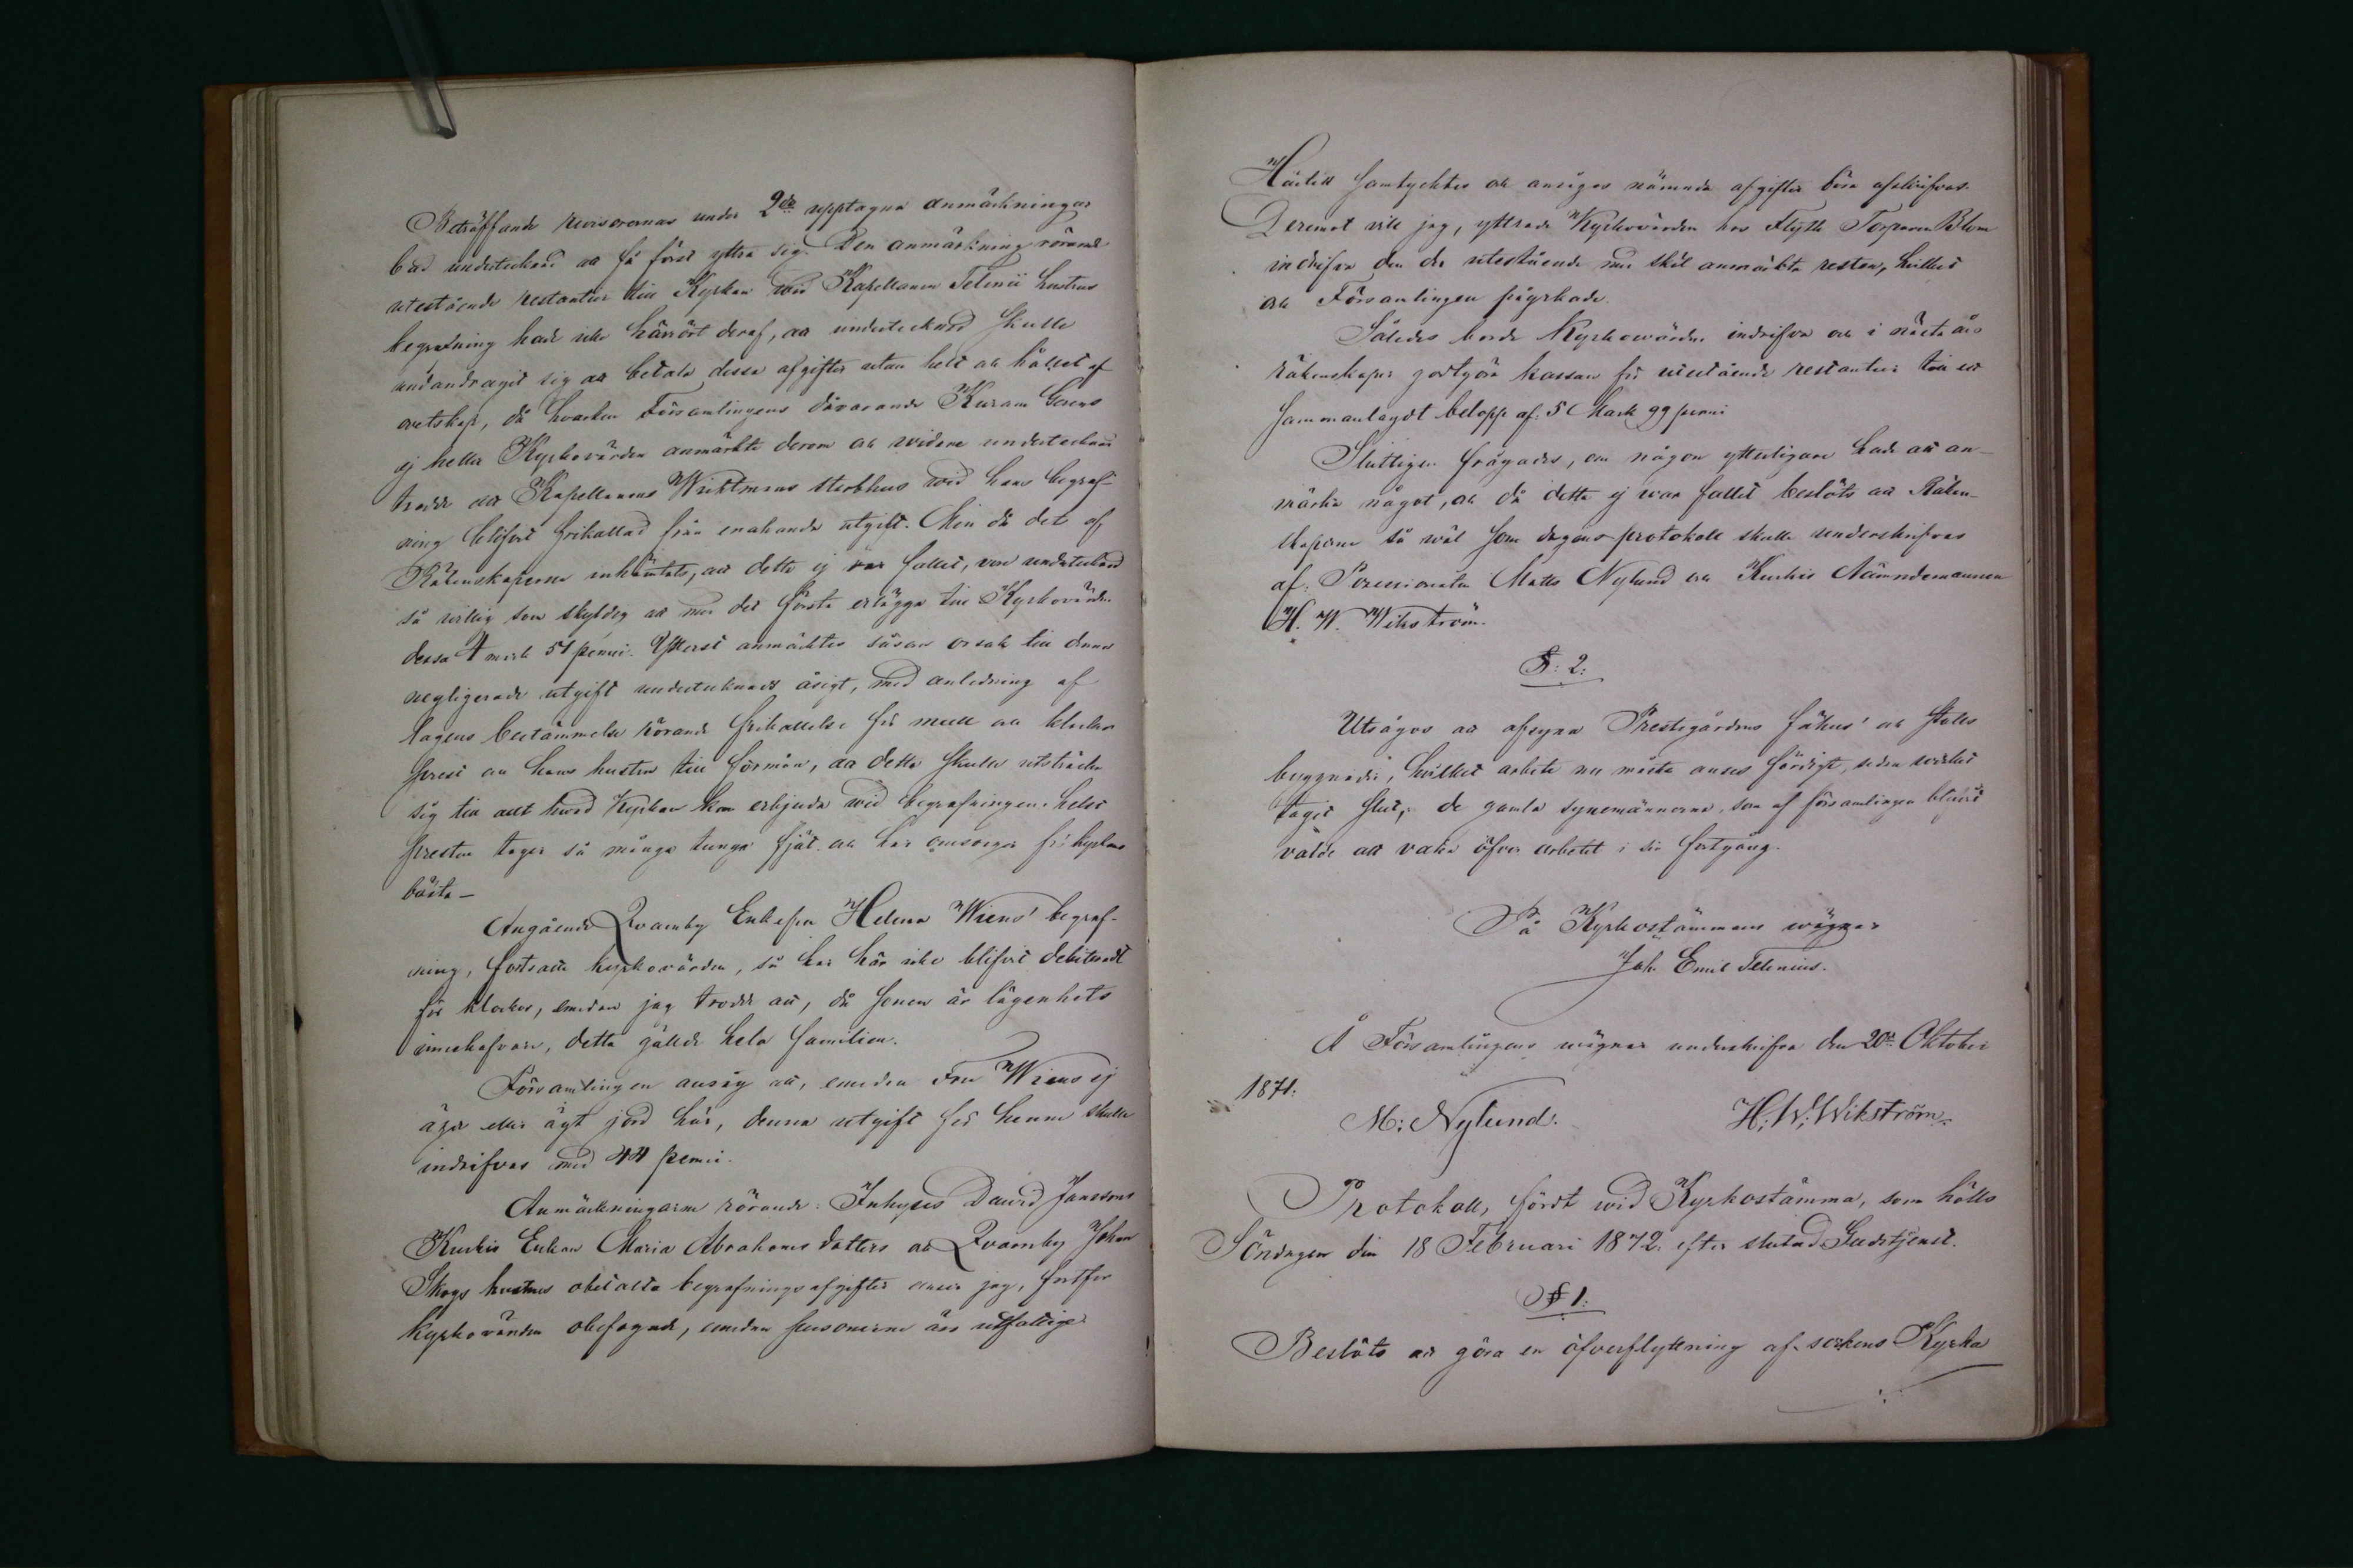 Beträffande revisorernas under 2dr upptagna anmärkningar
bad undertecknad att få först yttra sig. Den anmärkning rörande
utestående restantier till Kyrkan vid Kapellanen Telenii hustrus
begrafning hade icke härrört deraf, att undertecknad skulle
undandragit sig att betala dessa afgifter utan helt och hållet af
ovetskap, då hvarken Församlingens dåvarande
ej heller Kyrkovärden anmärkte derom och vidare undertecknad
trodde att Kapellanens Wichtmans sterbhus vid hans begraf-
ning blifvit frikallad från enahanda utgift. Men då det af
Räkenskaperne inhämtats, att detta ej var fallet, vore undertecknad
så villig som skyldig att med det första erlägga till Kyrkovärden
dessa 4 mark 51 penni. Ytterst anmärktes såsom orsak till denna
negligerade utgift undertecknads åsigt, med anledning af
lagens bestämmelse rörande frikallelse för mull och klockor
prest och hans hustru till förmån, att detta skulle utsträcka
sig till allt hvad Kyrkan kan erbjuda vid begrafningen. helst
presten tager så många tunga fjät och har omsorger för kyrkans
bästa –
Angående Qvarnby Enkefru Helena Wiens' begraf-
ning, fortsatte kyrkovärden, så har här icke blifvit debiteradt
för klockor, emedan jag trodde att, då sonen är lägenhets
innehafvare, detta gällde hela familien.
Församlingen ansåg att, emedan Fru Wiens ej
äger eller ägt jord här, denna utgift för henne skulle
indrifvas med 44 penni.
Anmärkningarne rörande: Inhyses David Janssons
Kuckis Enkan Maria Abrahams dotters och Qvarnby Johan
Skogs hustrus obetalta begrafnings afgifter anser jag, fortfor
kyrkovärden obefogade, emedan personerne äro utfattige.
Härtill samtycktes och ansågos nämnda afgifter böra afskrifvas.
Deremot vill jag, yttrade Kyrkovärden hos Flyttk Torparen Blom
indrifva den der utestående med skäl anmärkta resten, hvilket
och Församlingen påyrkade.
Således borde Kyrkowärden indrifva och i nästa års
räkenskaper godtgöra kassan för utestående restantier till ett
sammanlagdt belopp af: 5 Mark 99 penni
Slutligen frågades, om någon ytterligare hade att an-
märka något, och då detta ej var fallet beslöts att Räken-
skaperne så väl som dagens protokoll skulle underskrifvas
af: Possessionaten Matts Nylund och Kuckis Nämndemannen
H. W. Wikström.
§: 2:
Utsågos att afsyna Prestegårdens fähus' och stalls
byggnader, hvilket arbete nu måste anses färdigt, sedan
tagit slut, de gamla synemännerna, som af församlingen blifvit
valde att vaka öfver arbetet i sin fortgång.
På Kyrkostämmans wägnar
Joh. Emil Telenius.
Å Församlingens wägnar underskrifva den 20de Oktober
1871:
M: Nylund. H: W: Wikström.
Protokoll, fördt wid Kyrkostämma, som hölls
Söndagen den 18 Februari 1872. efter slutad Gudstjenst.
§ 1:
Beslöts att göra en öfverflyttning af sockens Kyrka